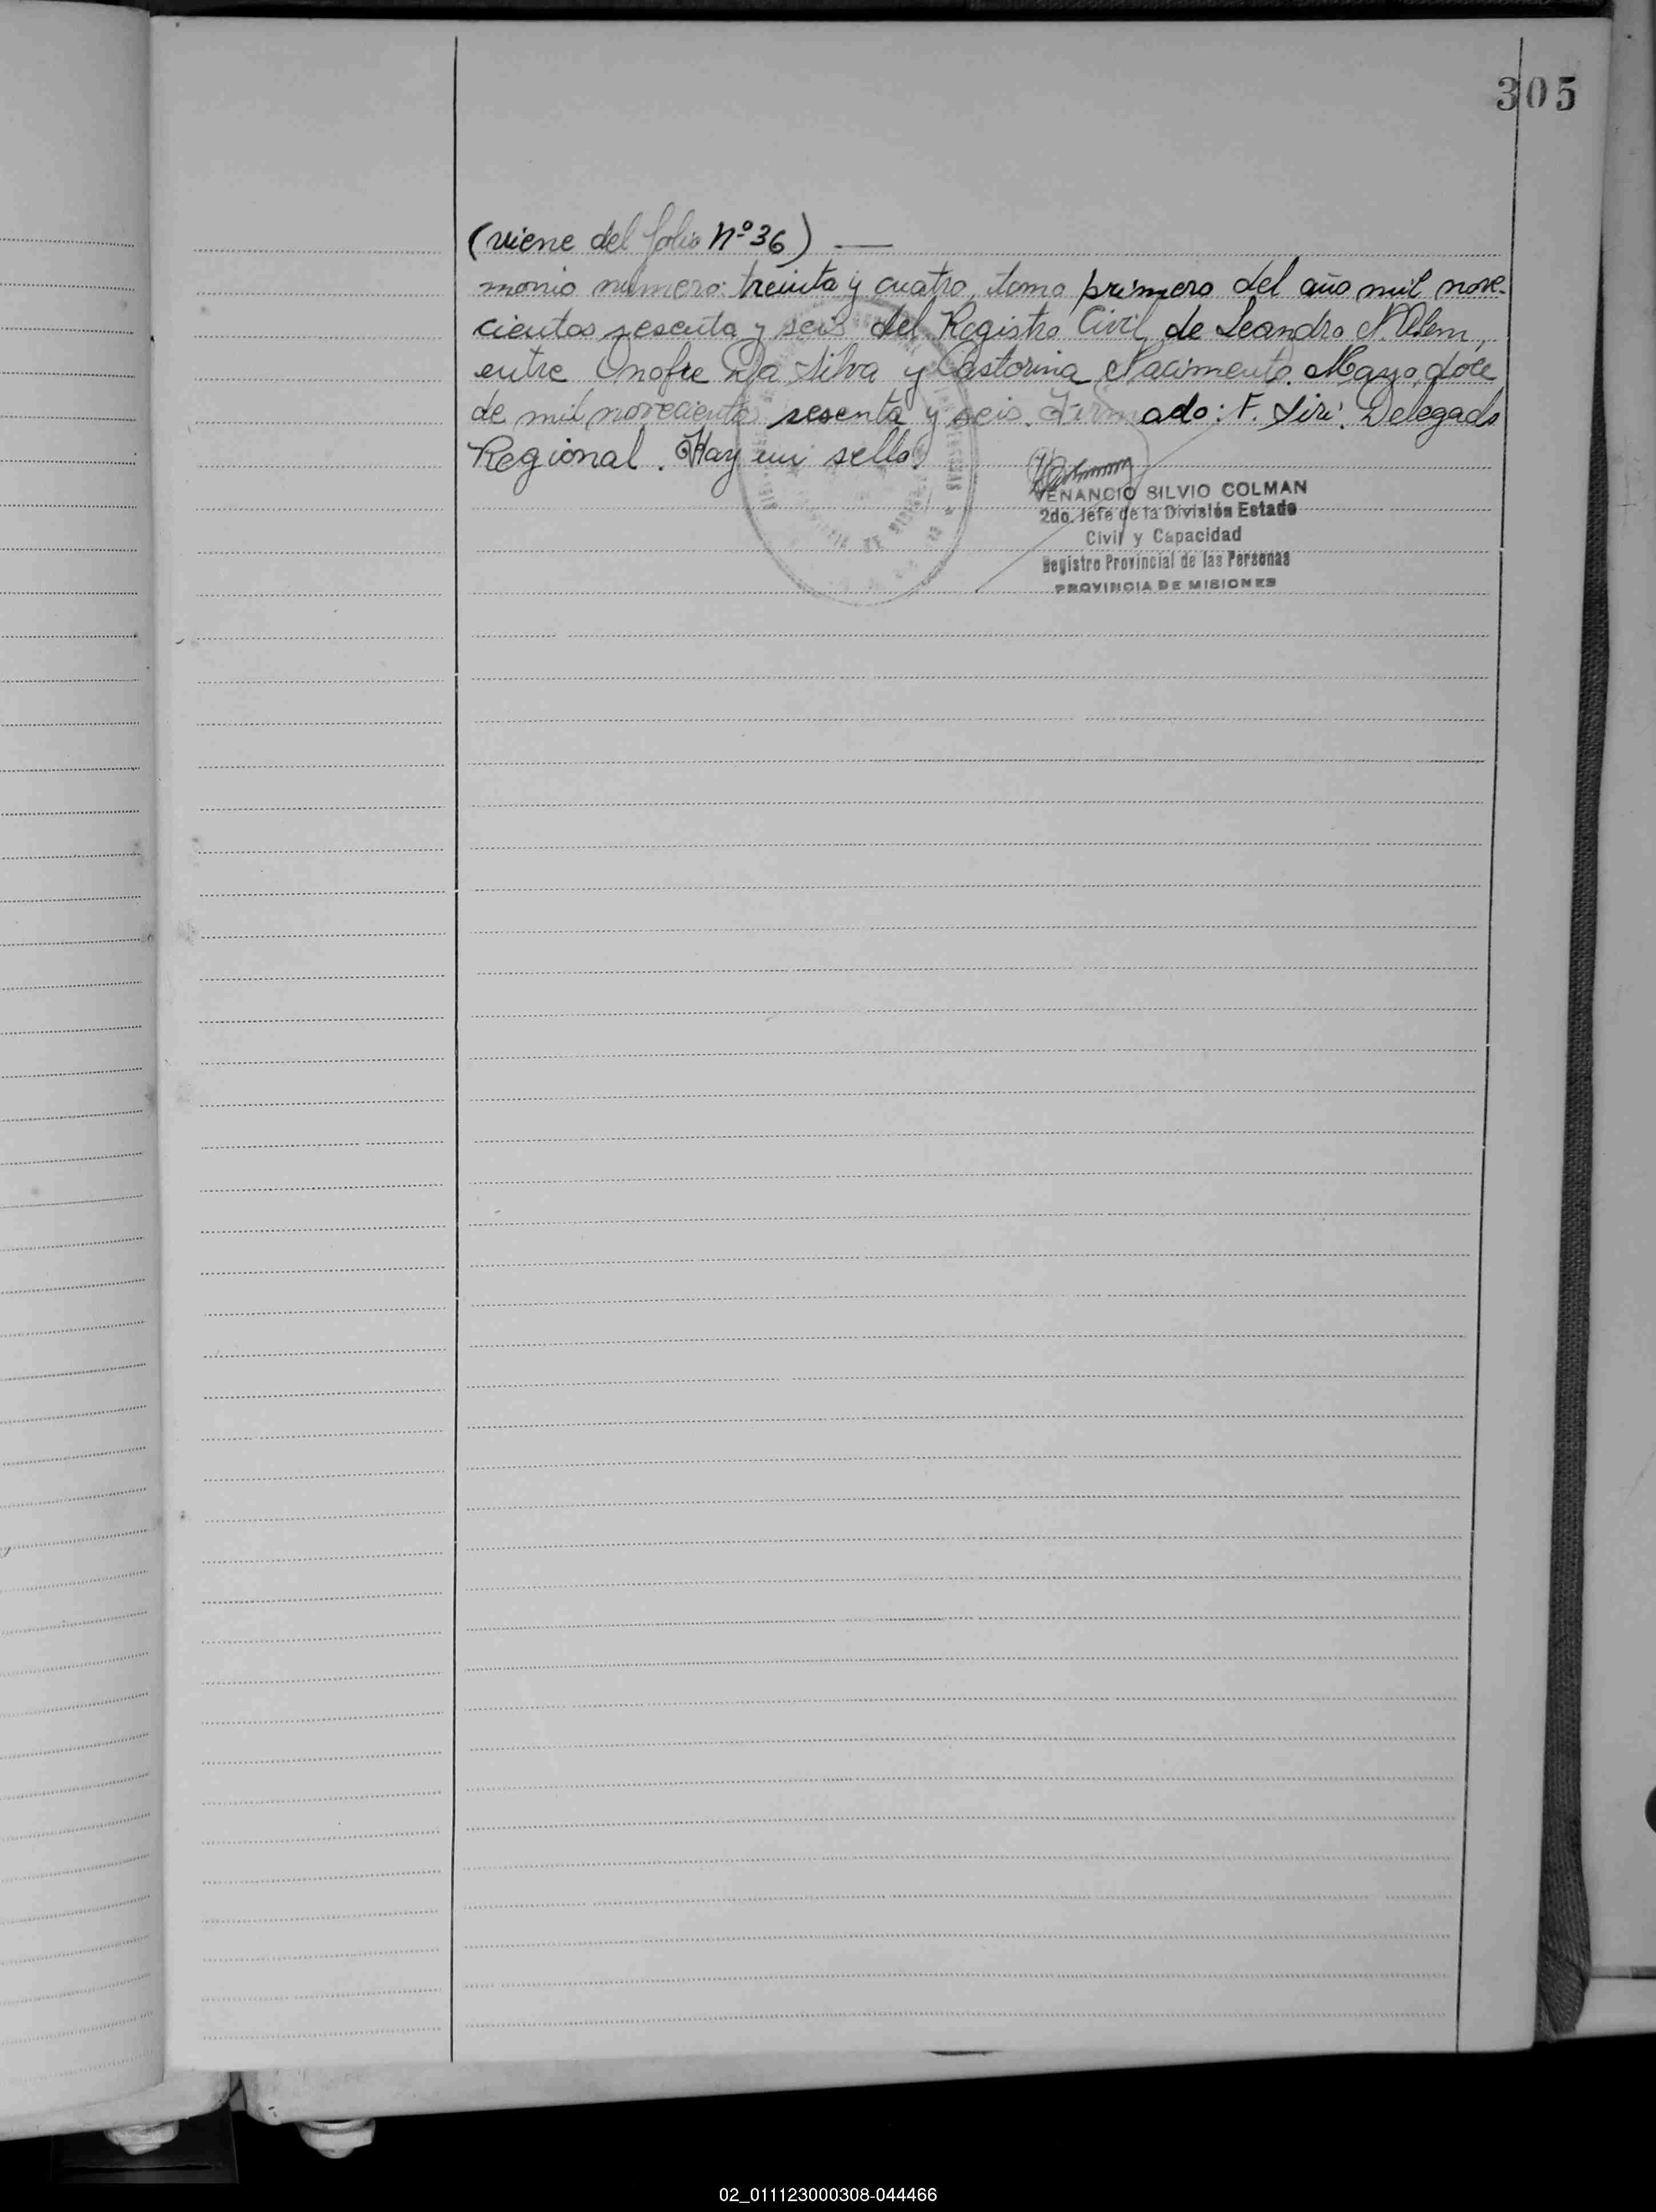 305
(viene del folio nº 36) —
monio número: treinta y cuatro, tomo primero del año mil nove-
cientos sesenta y seis del Registro Civil de Leandro N. Alem,
entre Onofre Da Silva y Castorina Nacimento. Mayo, doce
de mil novecientos sesenta y seis. Firmado: F. Siri. Delegado
Regional. Hay un sello.
VENANCIO SILVIO COLMAN
2do. Jefe de la División Estado
Civil y Capacidad
Registro Provincial de las Personas
PROVINCIA DE MISIONES
02_011123000308-044466